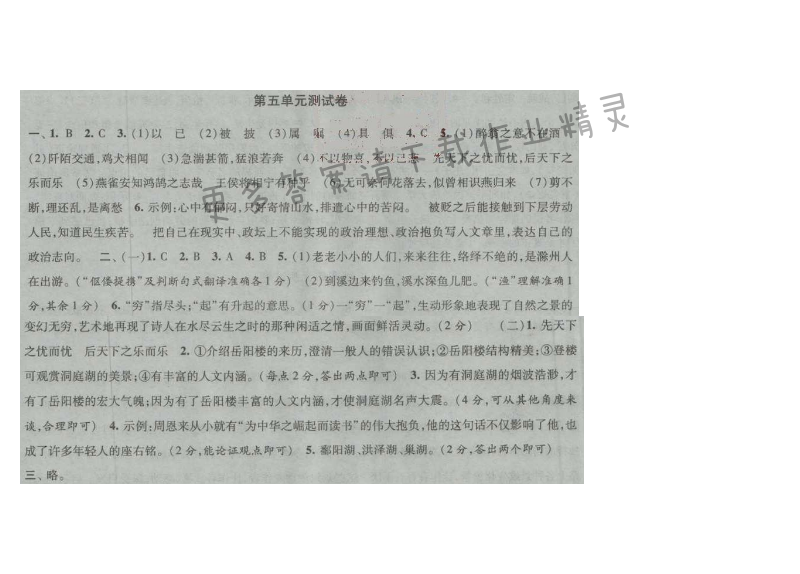 第五单元测试卷
一、1. B 2. C 3. (1)以 已 (2)被 披 (3)属 嘱 (4)具 俱 4. C 5. (1)醉翁之意不在酒
(2)阡陌交通,鸡犬相闻 (3)急湍甚箭,猛浪若奔 (4)不以物喜,不以己悲 先天下之忧而忧,后天下之
乐而乐 (5)燕雀安知鸿鹄之志哉 王侯将相宁有种乎 (6)无可奈何花落去,似曾相识燕归来 (7)剪不
断,理还乱,是离愁 6. 示例:心中有郁闷,只好寄情山水,排遣心中的苦闷。 被贬之后能接触到下层劳动
人民,知道民生疾苦。 把自己在现实中、政坛上不能实现的政治理想、政治抱负写入文章里,表达自己的
政治志向。 二、(一)1. C 2. B 3. A 4. B 5. (1)老老小小的人们,来来往往,络绎不绝的,是滁州人
在出游。(“伛偻提携”及判断句式翻译准确各1分) (2)到溪边来钓鱼,溪水深鱼儿肥。(“渔”理解准确1
分,其余1分) 6. “穷”指尽头;“起”有升起的意思。(1分)一“穷”一“起”,生动形象地表现了自然之景的
变幻无穷,艺术地再现了诗人在水尽云生之时的那种闲适之情,画面鲜活灵动。(2分) (二)1. 先天下
之忧而忧 后天下之乐而乐 2. ①介绍岳阳楼的来历,澄清一般人的错误认识;②岳阳楼结构精美;③登楼
可观赏洞庭湖的美景;④有丰富的人文内涵。(每点2分,答出两点即可) 3. 因为有洞庭湖的烟波浩渺,才
有了岳阳楼的宏大气魄;因为有了岳阳楼丰富的人文内涵,才使洞庭湖名声大震。(4分,可从其他角度来
谈,合理即可) 4. 示例:周恩来从小就有“为中华之崛起而读书”的伟大抱负,他的这句话不仅影响了他,也
成了许多年轻人的座右铭。(2分,能论证观点即可) 5. 鄱阳湖、洪泽湖、巢湖。(2分,答出两个即可)
三、略。
更多答案请下载作业精灵